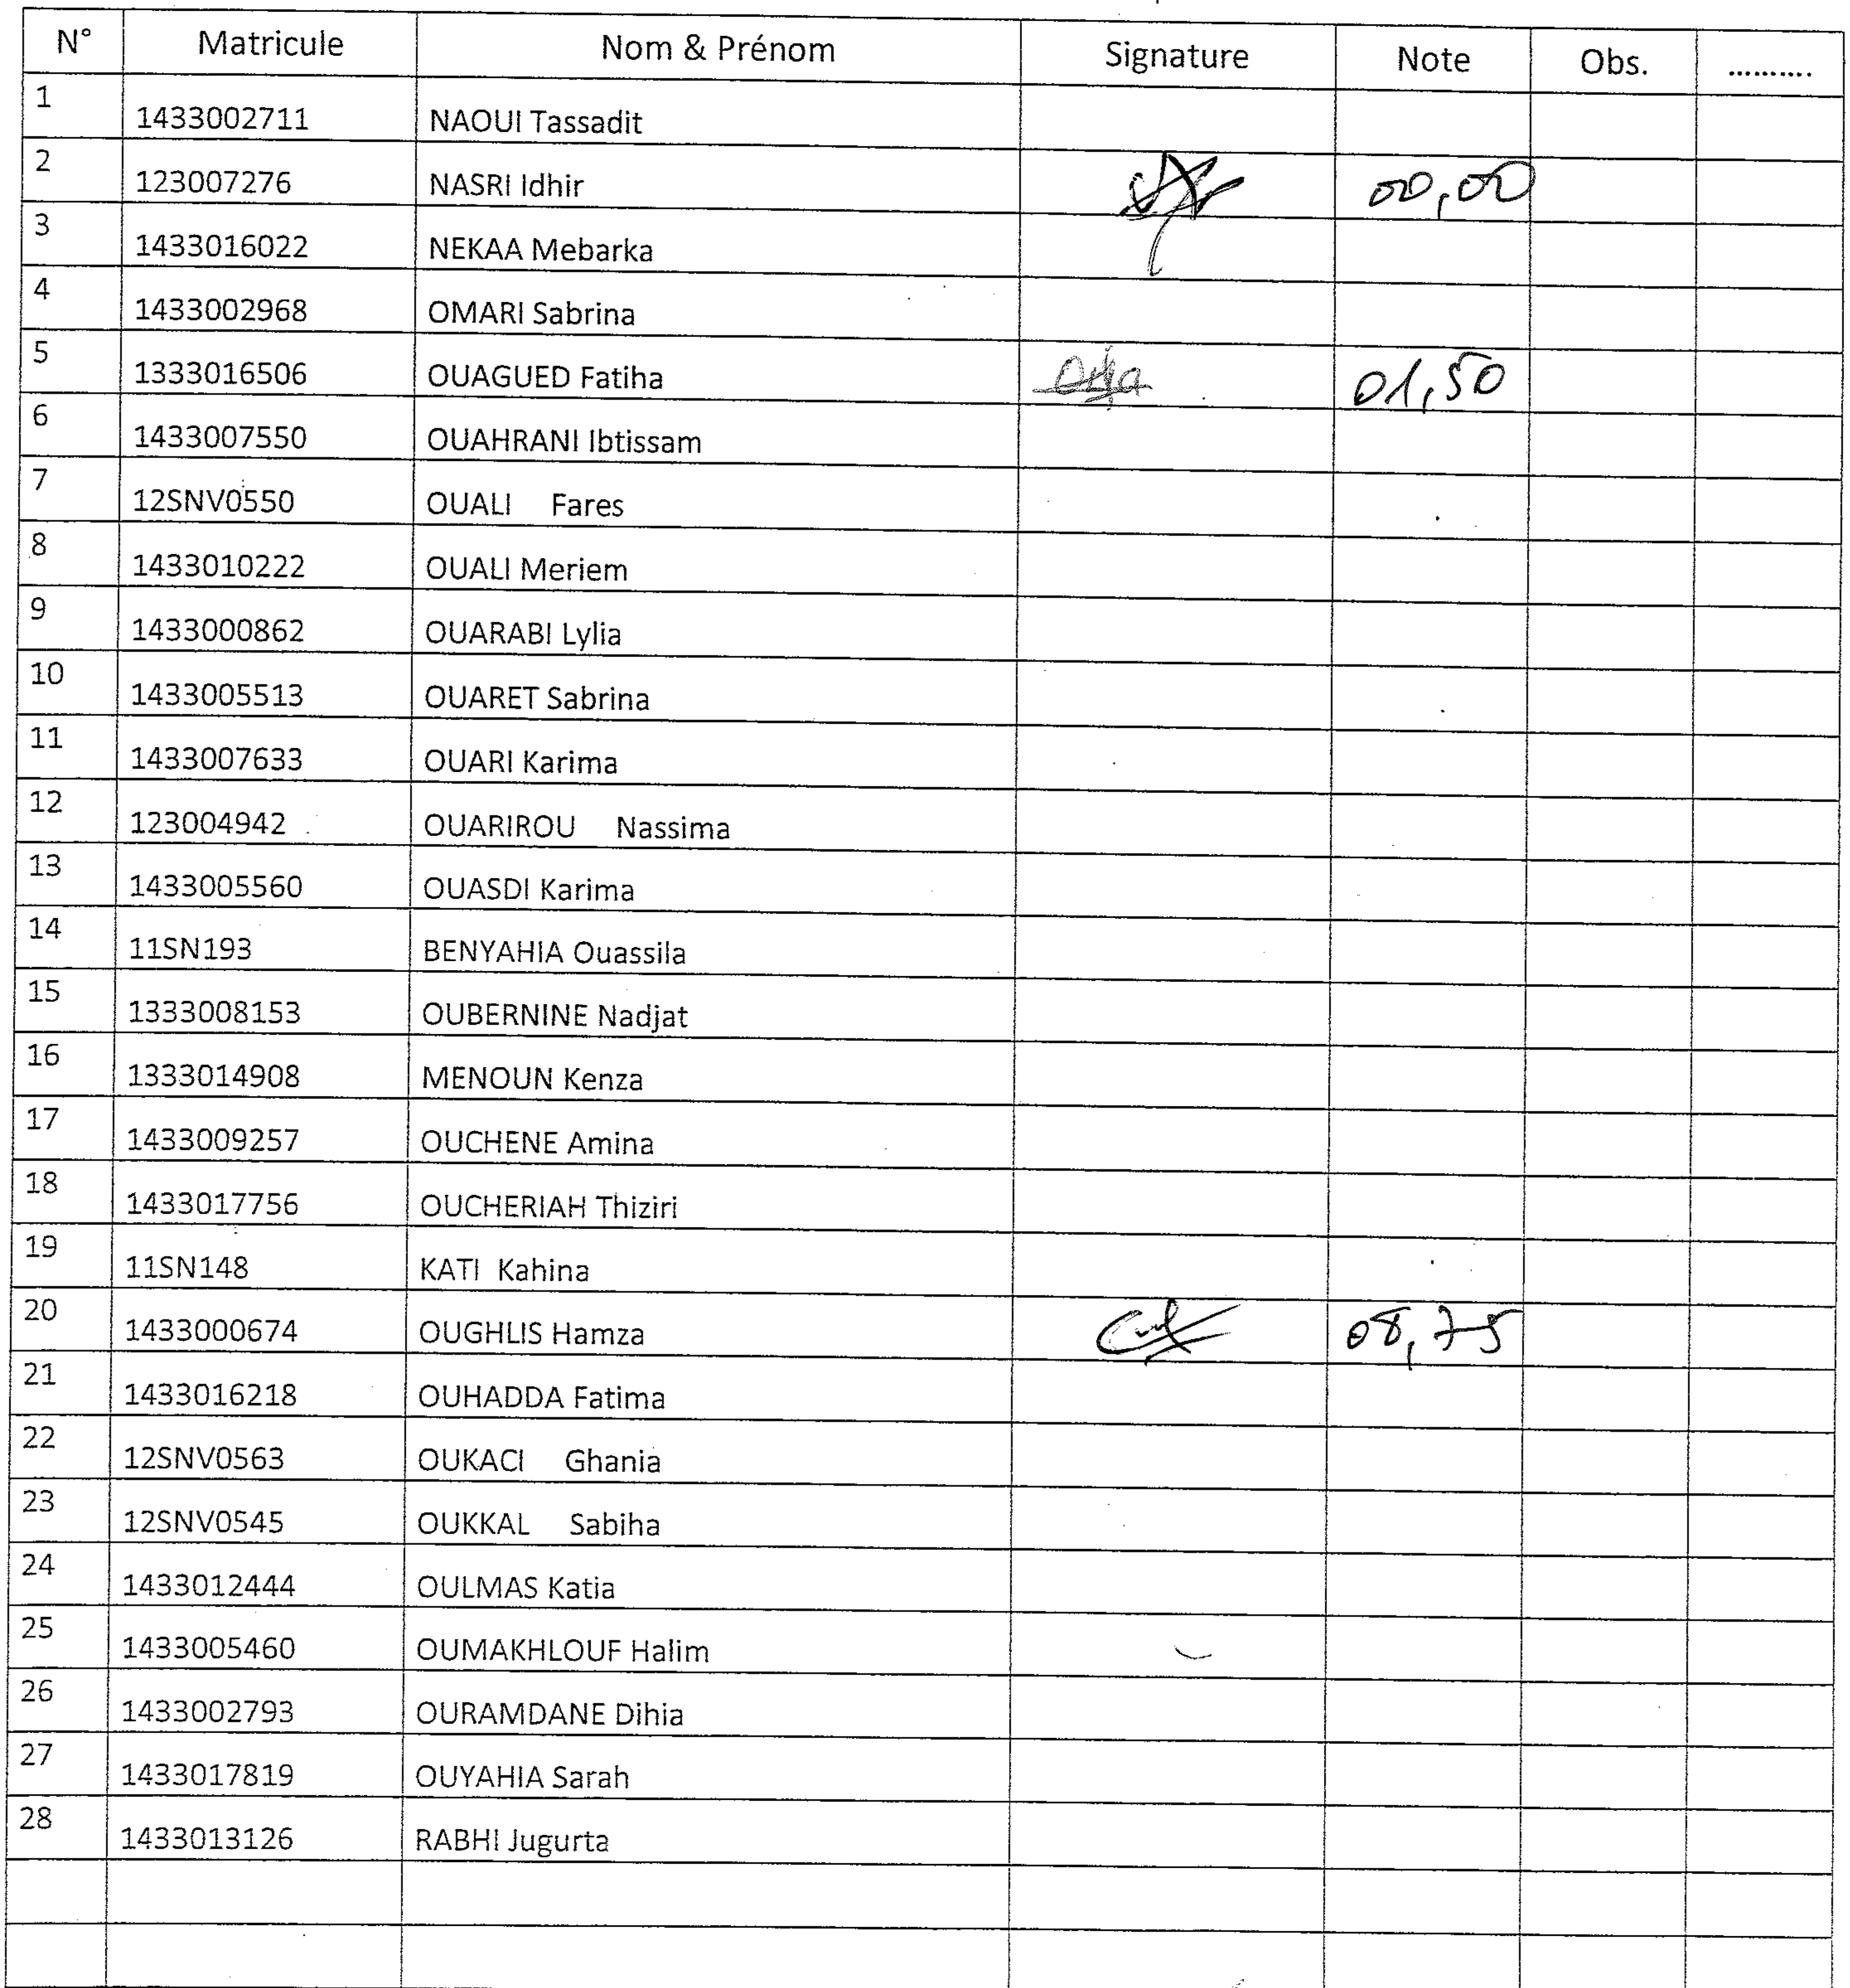 N° Matricule Nom & Prénom Signature Note Obs. ..........
1 1433002711 NAOUI Tassadit
2 123007276 NASRI Idhir 00,00
3 1433016022 NEKAA Mebarka
4 1433002968 OMARI Sabrina
5 1333016506 OUAGUED Fatiha 01,50
6 1433007550 OUAHRANI Ibtissam
7 12SNV0550 OUALI Fares
8 1433010222 OUALI Meriem
9 1433000862 OUARABI Lylia
10 1433005513 OUARET Sabrina
11 1433007633 OUARI Karima
12 123004942 OUARIROU Nassima
13 1433005560 OUASDI Karima
14 11SN193 BENYAHIA Ouassila
15 1333008153 OUBERNINE Nadjat
16 1333014908 MENOUN Kenza
17 1433009257 OUCHENE Amina
18 1433017756 OUCHERIAH Thiziri
19 11SN148 KATI Kahina
20 1433000674 OUGHLIS Hamza 08,75
21 1433016218 OUHADDA Fatima
22 12SNV0563 OUKACI Ghania
23 12SNV0545 OUKKAL Sabiha
24 1433012444 OULMAS Katia
25 1433005460 OUMAKHLOUF Halim
26 1433002793 OURAMDANE Dihia
27 1433017819 OUYAHIA Sarah
28 1433013126 RABHI Jugurta